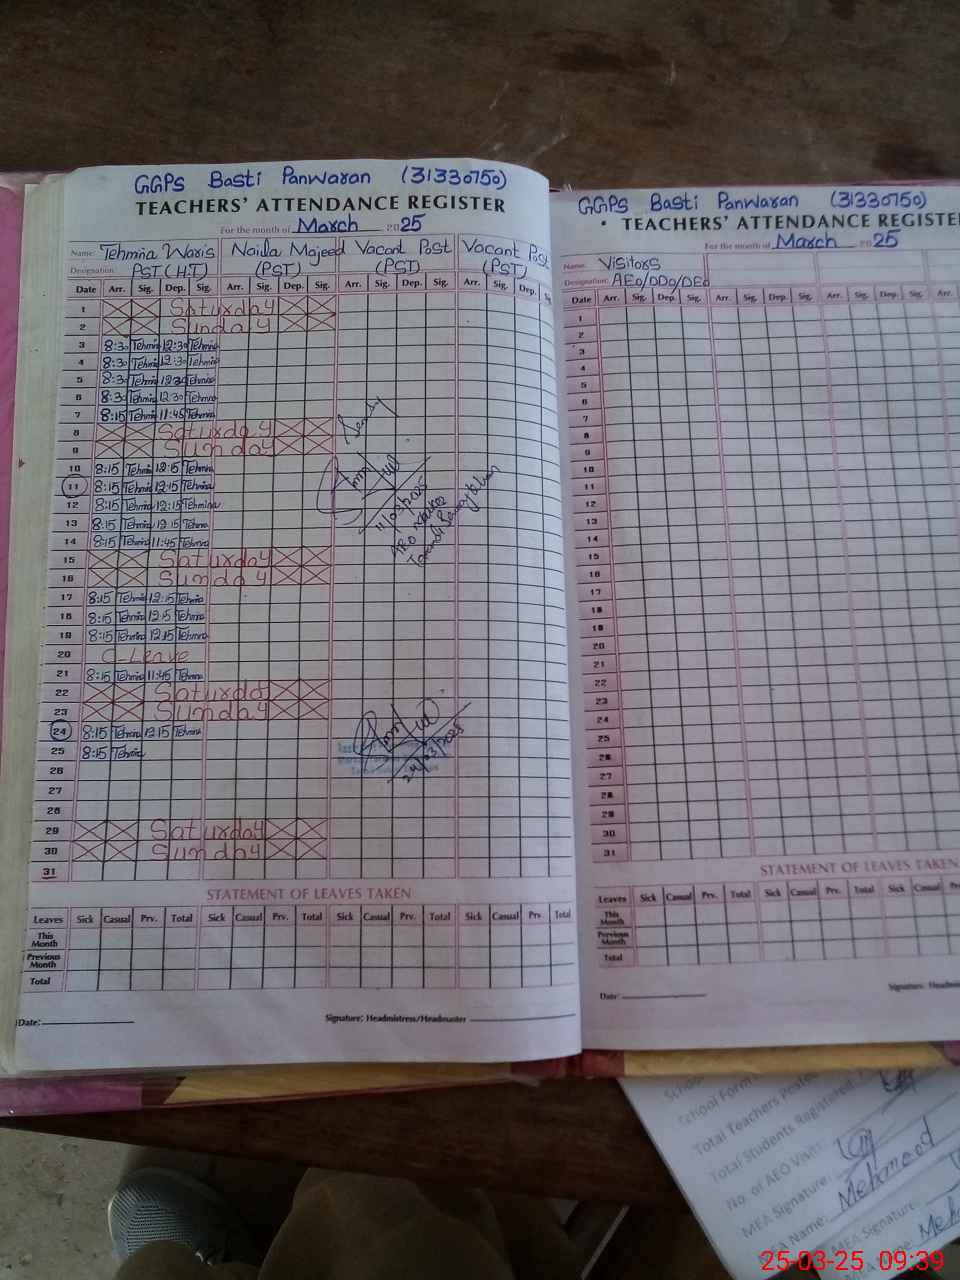 GGPS Basti Panwaran (31330750)
TEACHERS' ATTENDANCE REGISTER
For the month of March 2025
Name: Tehmina Waris Naila Majeed Vacant Post Vacant Post
Designation: PST (H.T) (PST) (PST) (PST)
Date Arr. Sig. Dep. Sig. Arr. Sig. Dep. Sig. Arr. Sig. Dep. Sig. Arr. Sig. Dep.
1 Saturday
2 Sunday
3 8:30 Tehmina 12:30 Tehmina
4 8:30 Tehmina 12:30 Tehmina
5 8:30 Tehmina 12:30 Tehmina
6 8:30 Tehmina 12:30 Tehmina
7 8:15 Tehmina 11:45 Tehmina
8 Saturday
9 Sunday
10 8:15 Tehmina 12:15 Tehmina
11 8:15 Tehmina 12:15 Tehmina
12 8:15 Tehmina 12:15 Tehmina
13 8:15 Tehmina 12:15 Tehmina
14 8:15 Tehmina 11:45 Tehmina
15 Saturday
16 Sunday
17 8:15 Tehmina 12:15 Tehmina
18 8:15 Tehmina 12:15 Tehmina
19 8:15 Tehmina 12:15 Tehmina
20 C-Leave
21 8:15 Tehmina 11:45 Tehmina
22 Saturday
23 Sunday
24 8:15 Tehmina 12:15 Tehmina
25 8:15 Tehmina
26
27
28
29 Saturday
30 Sunday
31
11/03/2025
AEO
24/03/2025
STATEMENT OF LEAVES TAKEN
Leaves Sick Casual Prv. Total Sick Casual Prv. Total Sick Casual Prv. Total Sick Casual Prv. Total
This Month
Previous Month
Total
Date:
Signature: Headmistress/Headmaster
GGPS Basti Panwaran (31330750)
TEACHERS' ATTENDANCE REGISTER
For the month of March 2025
Name: Visitors
Designation: AEO/DDO/DEO
Date Arr. Sig. Dep. Sig. Arr. Sig. Dep. Sig. Arr. Sig. Dep. Sig. Arr.
1
2
3
4
5
6
7
8
9
10
11
12
13
14
15
16
17
18
19
20
21
22
23
24
25
26
27
28
29
30
31
STATEMENT OF LEAVES TAKEN
Leaves Sick Casual Prv. Total Sick Casual Prv. Total Sick Casual
This Month
Previous Month
Total
Date:
Signature:
School Form
Total Teachers Posted
Total Students Registered
No. of AEO Visit
MEA Signature:
MEA Name: Mehmood
MEA Signature:
25-03-25 09:39